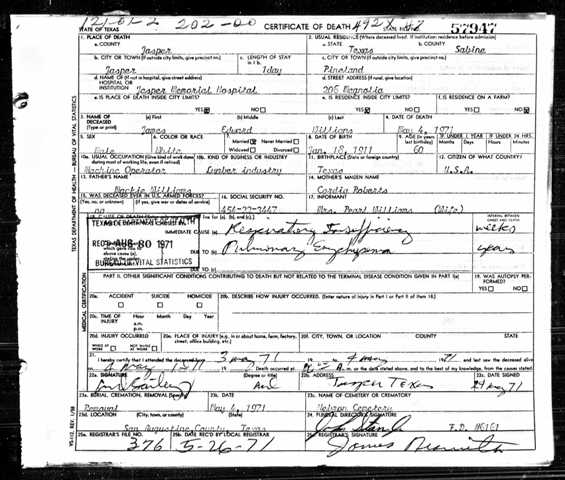 121-01-2 202-00
STATE OF TEXAS CERTIFICATE OF DEATH STATE 57947
1. PLACE OF DEATH
a. COUNTY
Jasper
2. USUAL RESIDENCE (Where deceased lived. If institution: residence before admission)
a. STATE Texas b. COUNTY Sabine
b. CITY OR TOWN (If outside city limits, give precinct no.)
Jasper
c. LENGTH OF STAY in 1 b.
1day
c. CITY OR TOWN (If outside city limits, give precinct no.)
Pineland
d. NAME OF (If not in hospital, give street address)
HOSPITAL OR
INSTITUTION Jasper Memorial Hospital
d. STREET ADDRESS (If rural, give location)
206 Magnolia
e. IS PLACE OF DEATH INSIDE CITY LIMITS?
YES NO
e. IS RESIDENCE INSIDE CITY LIMITS?
YES NO
f. IS RESIDENCE ON A FARM?
YES NO
3. NAME OF DECEASED (Type or print)
(a) First James
(b) Middle Edward
(c) Last Williams
4. DATE OF DEATH
May 4, 1971
5. SEX
Male
6. COLOR OR RACE
White
7. Married Never Married
Widowed Divorced
8. DATE OF BIRTH
Jan. 18, 1911
9. AGE (In years last birthday)
60
IF UNDER 1 YEAR
Months Days
IF UNDER 24 HRS.
Hours Minutes
10a. USUAL OCCUPATION (Give kind of work done during most of working life, even if retired)
Machine Operator
10b. KIND OF BUSINESS OR INDUSTRY
Lumber industry
11. BIRTHPLACE (State or foreign country)
Texas
12. CITIZEN OF WHAT COUNTRY?
U.S.A.
13. FATHER'S NAME
Williams
14. MOTHER'S MAIDEN NAME
Cordia Roberts
15. WAS DECEASED EVER IN U.S. ARMED FORCES?
(Yes, no, or unknown) (If yes, give war or dates of service)
no
16. SOCIAL SECURITY NO.
17. INFORMANT
Mrs. Pearl Williams (Wife)
18. CAUSE OF DEATH
IMMEDIATE CAUSE (a) Respiratory Insufficiency
INTERVAL BETWEEN ONSET AND DEATH
weeks
DUE TO (b) Pulmonary
years
DUE TO (c)
TEXAS DEPARTMENT OF HEALTH
REC'D AUG 30 1971
BUREAU OF VITAL STATISTICS
PART II. OTHER SIGNIFICANT CONDITIONS CONTRIBUTING TO DEATH BUT NOT RELATED TO THE TERMINAL DISEASE CONDITION GIVEN IN PART I(a)
19. WAS AUTOPSY PERFORMED?
YES NO
20a. ACCIDENT SUICIDE HOMICIDE
20b. DESCRIBE HOW INJURY OCCURRED. (Enter nature of injury in Part I or Part II of item 18.)
20c. TIME OF INJURY
Hour Month Day Year
a.m.
p.m.
20d. INJURY OCCURRED
WHILE AT WORK NOT WHILE AT WORK
20e. PLACE OF INJURY (e.g., in or about home, farm, factory, street, office building, etc.)
20f. CITY, TOWN, OR LOCATION COUNTY STATE
21. I hereby certify that I attended the deceased from 3 may 71 to 4 may 71 and last saw the deceased alive
on 4 may 1971. Death occurred at m. on the date stated above, and to the best of my knowledge, from the causes stated.
22a. SIGNATURE (Degree or title)
22b. ADDRESS
Jasper Texas
22c. DATE SIGNED
24 may 71
23a. BURIAL, CREMATION, REMOVAL (Specify)
Removal
23b. DATE
May 4, 1971
23c. NAME OF CEMETERY OR CREMATORY
Cemetery
23d. LOCATION (City, town, or county) (State)
San Augustine County Texas
24. FUNERAL DIRECTOR'S SIGNATURE
25a. REGISTRAR'S FILE NO.
376
25b. DATE REC'D BY LOCAL REGISTRAR
5-26-71
25c. REGISTRAR'S SIGNATURE
TEXAS DEPARTMENT OF HEALTH - BUREAU OF VITAL STATISTICS
MEDICAL CERTIFICATION